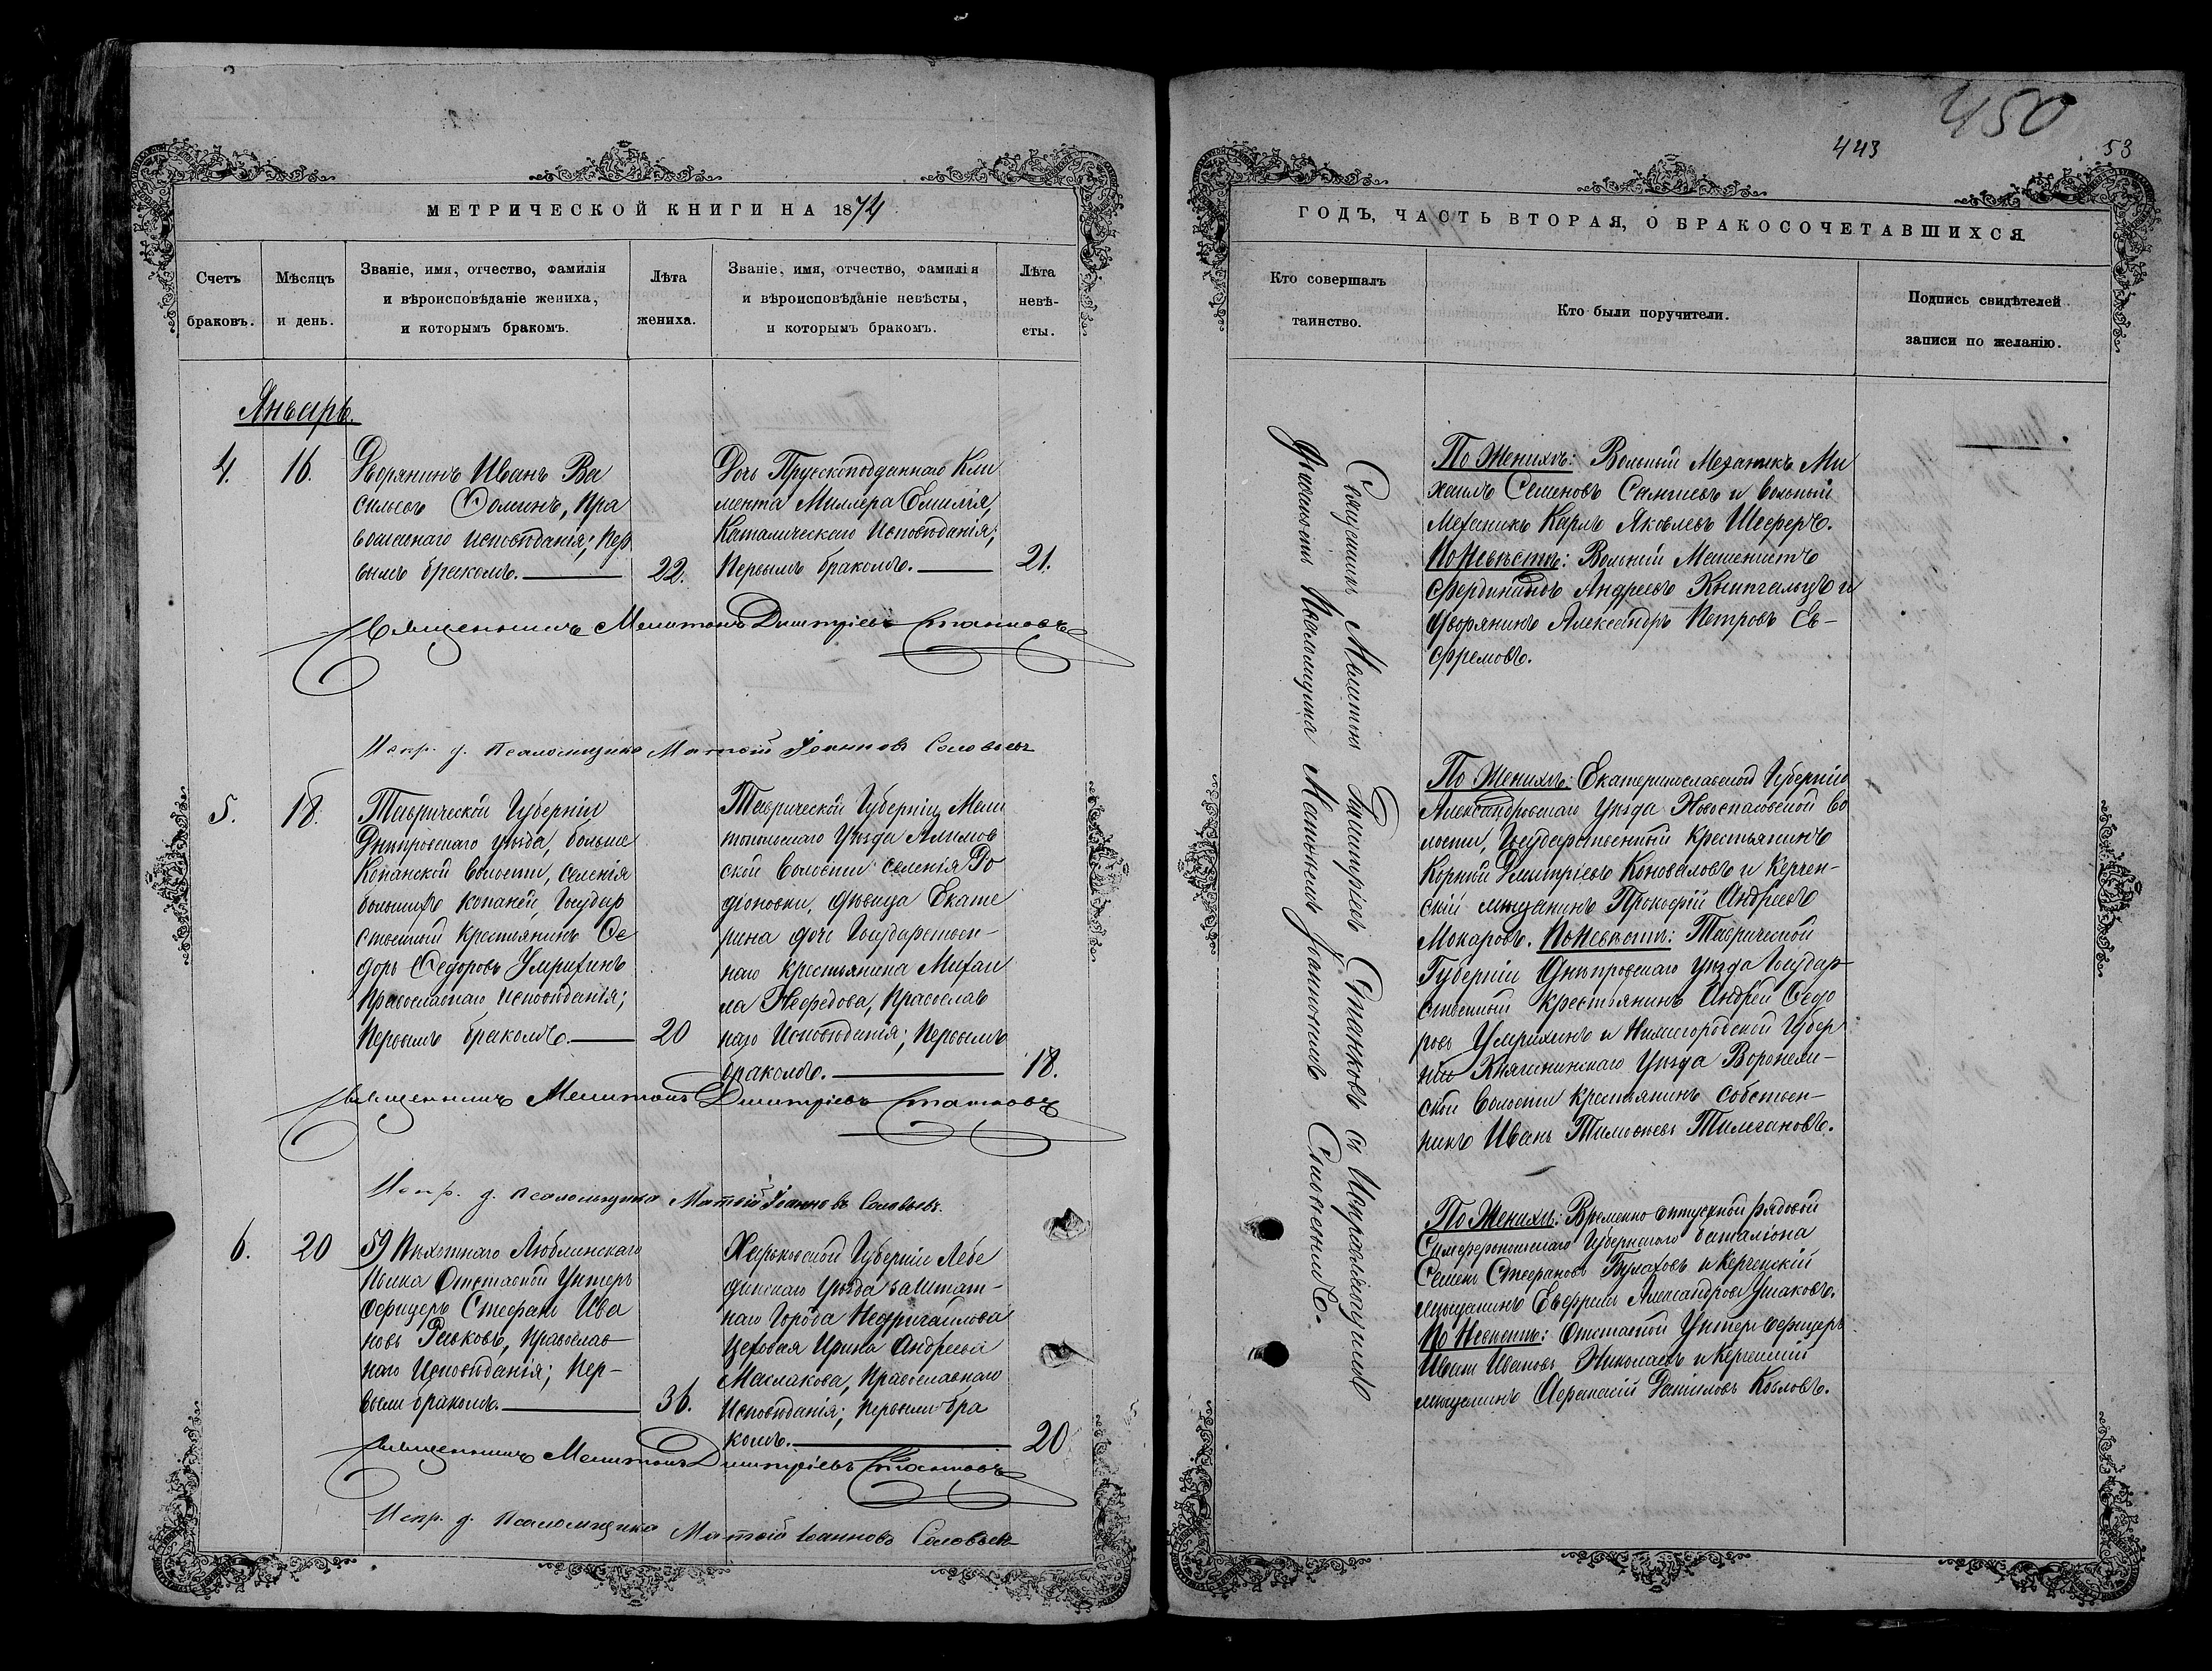 МЕТРИЧЕСКОЙ КНИГИ НА 1874
Счетъ браковъ.
Мѣсяцъ и день.
Званіе, имя, отчество, фамилія
и вѣроисповѣданіе жениха,
и которымъ бракомъ.
Лѣта жениха.
Званіе, имя, отчество, фамилія
и вѣроисповѣданіе невѣсты,
и которымъ бракомъ.
Лѣта невѣ-
сты.
Январь.
4.
16.
Дворянинъ Иванъ Ва
сильевъ Ѳоминъ, Пра
вославнаго исповѣданія; Пер
вымъ бракомъ.
22.
Дочь Прусскоподданнаго Кли
мента Миллера Емилія,
Католическаго Исповѣданія;
Первымъ бракомъ.
21.
Священникъ Мелитонъ Димитріевъ Станковъ
Испр. д. Псаломщика Матѳій Іоанновъ Соловьевъ
5.
18.
Таврической Губерніи
Днѣпровскаго уѣзда, больше
Копанской волости, селенія
большихъ Копаней, Государ
ственный Крестьянинъ Ѳе
доръ Ѳедоровъ Умрихинъ
Православнаго Исповѣданія;
Первымъ бракомъ.
20
Таврической Губерніи Мели
топольскаго Уѣзда
ской Волости селенія Ро
діоновки, дѣвица Екате
рина дочь Государствен-
наго Крестьянина Михаи
ла Нефедова, Православ
наго Исповѣданія; Первымъ
бракомъ.
18.
Священникъ Мелитонъ Димитріевъ Станковъ
Испр. д. Псаломщика Матѳій Іоанновъ Соловьевъ.
6.
20
59 Пѣхотнаго Люблинскаго
Полка Отставной Унтеръ
Офицеръ Стефанъ Ива
новъ Православ
наго Исповѣданія; Пер-
вымъ бракомъ.
36.
Харьковской Губерніи Лебе
динскаго Уѣзда заштат-
наго Города Недригайлова
Цеховая Ирина Андреева
Маслакова, Православнаго
Исповѣданія; первымъ бра
комъ.
20
Священникъ Мелитонъ Димитріевъ Станковъ
Испр. д. Псаломщика Матѳій Іоанновъ Соловьевъ
450
443
53
ГОДЪ, ЧАСТЬ ВТОРАЯ, О БРАКОСОЧЕТАВШИХСЯ
Кто совершалъ таинство.
Кто были поручители.
Подпись свидѣтелей
записи по желанію.
Священникъ Мелитонъ Димитріевъ Станковъ съ Исправляющимъ
должность Псаломщика Матѳіемъ Іоанновымъ Соловьевымъ.
По Женихѣ: Вольный Механикъ Ми
хаилъ Семеновъ и вольный
Механикъ Карлъ Яковлевъ Шеферъ.
По Невѣстѣ: Вольный Машинистъ
Фердинандъ Андреевъ и
Дворянинъ Александръ Петровъ Ев-
фремовъ.
По Женихѣ: Екатеринославской Губерніи
Александровскаго Уѣзда Новоспасовской во
лости, Государственный Крестьянинъ
Корнилій Димитріевъ Коноваловъ и Керчен-
скій мѣщанинъ Прокофій Андреевъ
Макаровъ. По Невѣстѣ: Таврической
Губерніи Днѣпровскаго уѣзда Государ
ственный Крестьянинъ Андрей Ѳедо
ровъ Умрихинъ и Нижегородской Губер
ніи Княгининскаго Уѣзда
ской Волости Крестьянинъ Собствен-
никъ Иванъ Тимоѳеевъ
По Женихѣ: Временно отпускной рядовой
Симферопольскаго Губернскаго баталіона
Семенъ Стефановъ и Керченскій
мѣщанинъ Александровъ Ушаковъ.
По Невѣстѣ: Отставной Унтеръ Офицеръ
Иванъ Ивановъ Николаевъ и Керченскій
мѣщанинъ Аѳанасій Даниловъ Козловъ.